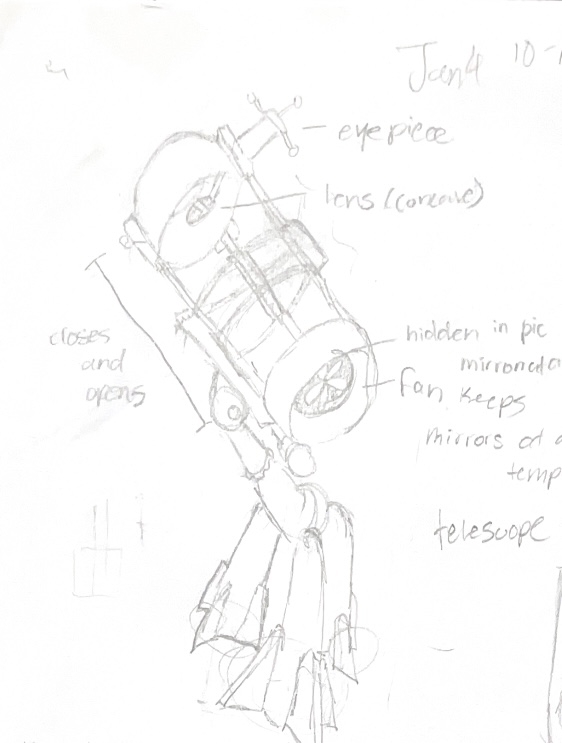 Jan 4 10-
eyepiece
lens (concave)
closes
and
opens
hidden in pic
fan keeps
mirrors at a
temp
telescope